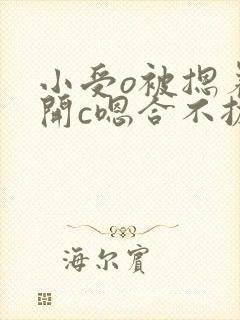 小受o被摁着
開c嗯合不拢
海尔賓